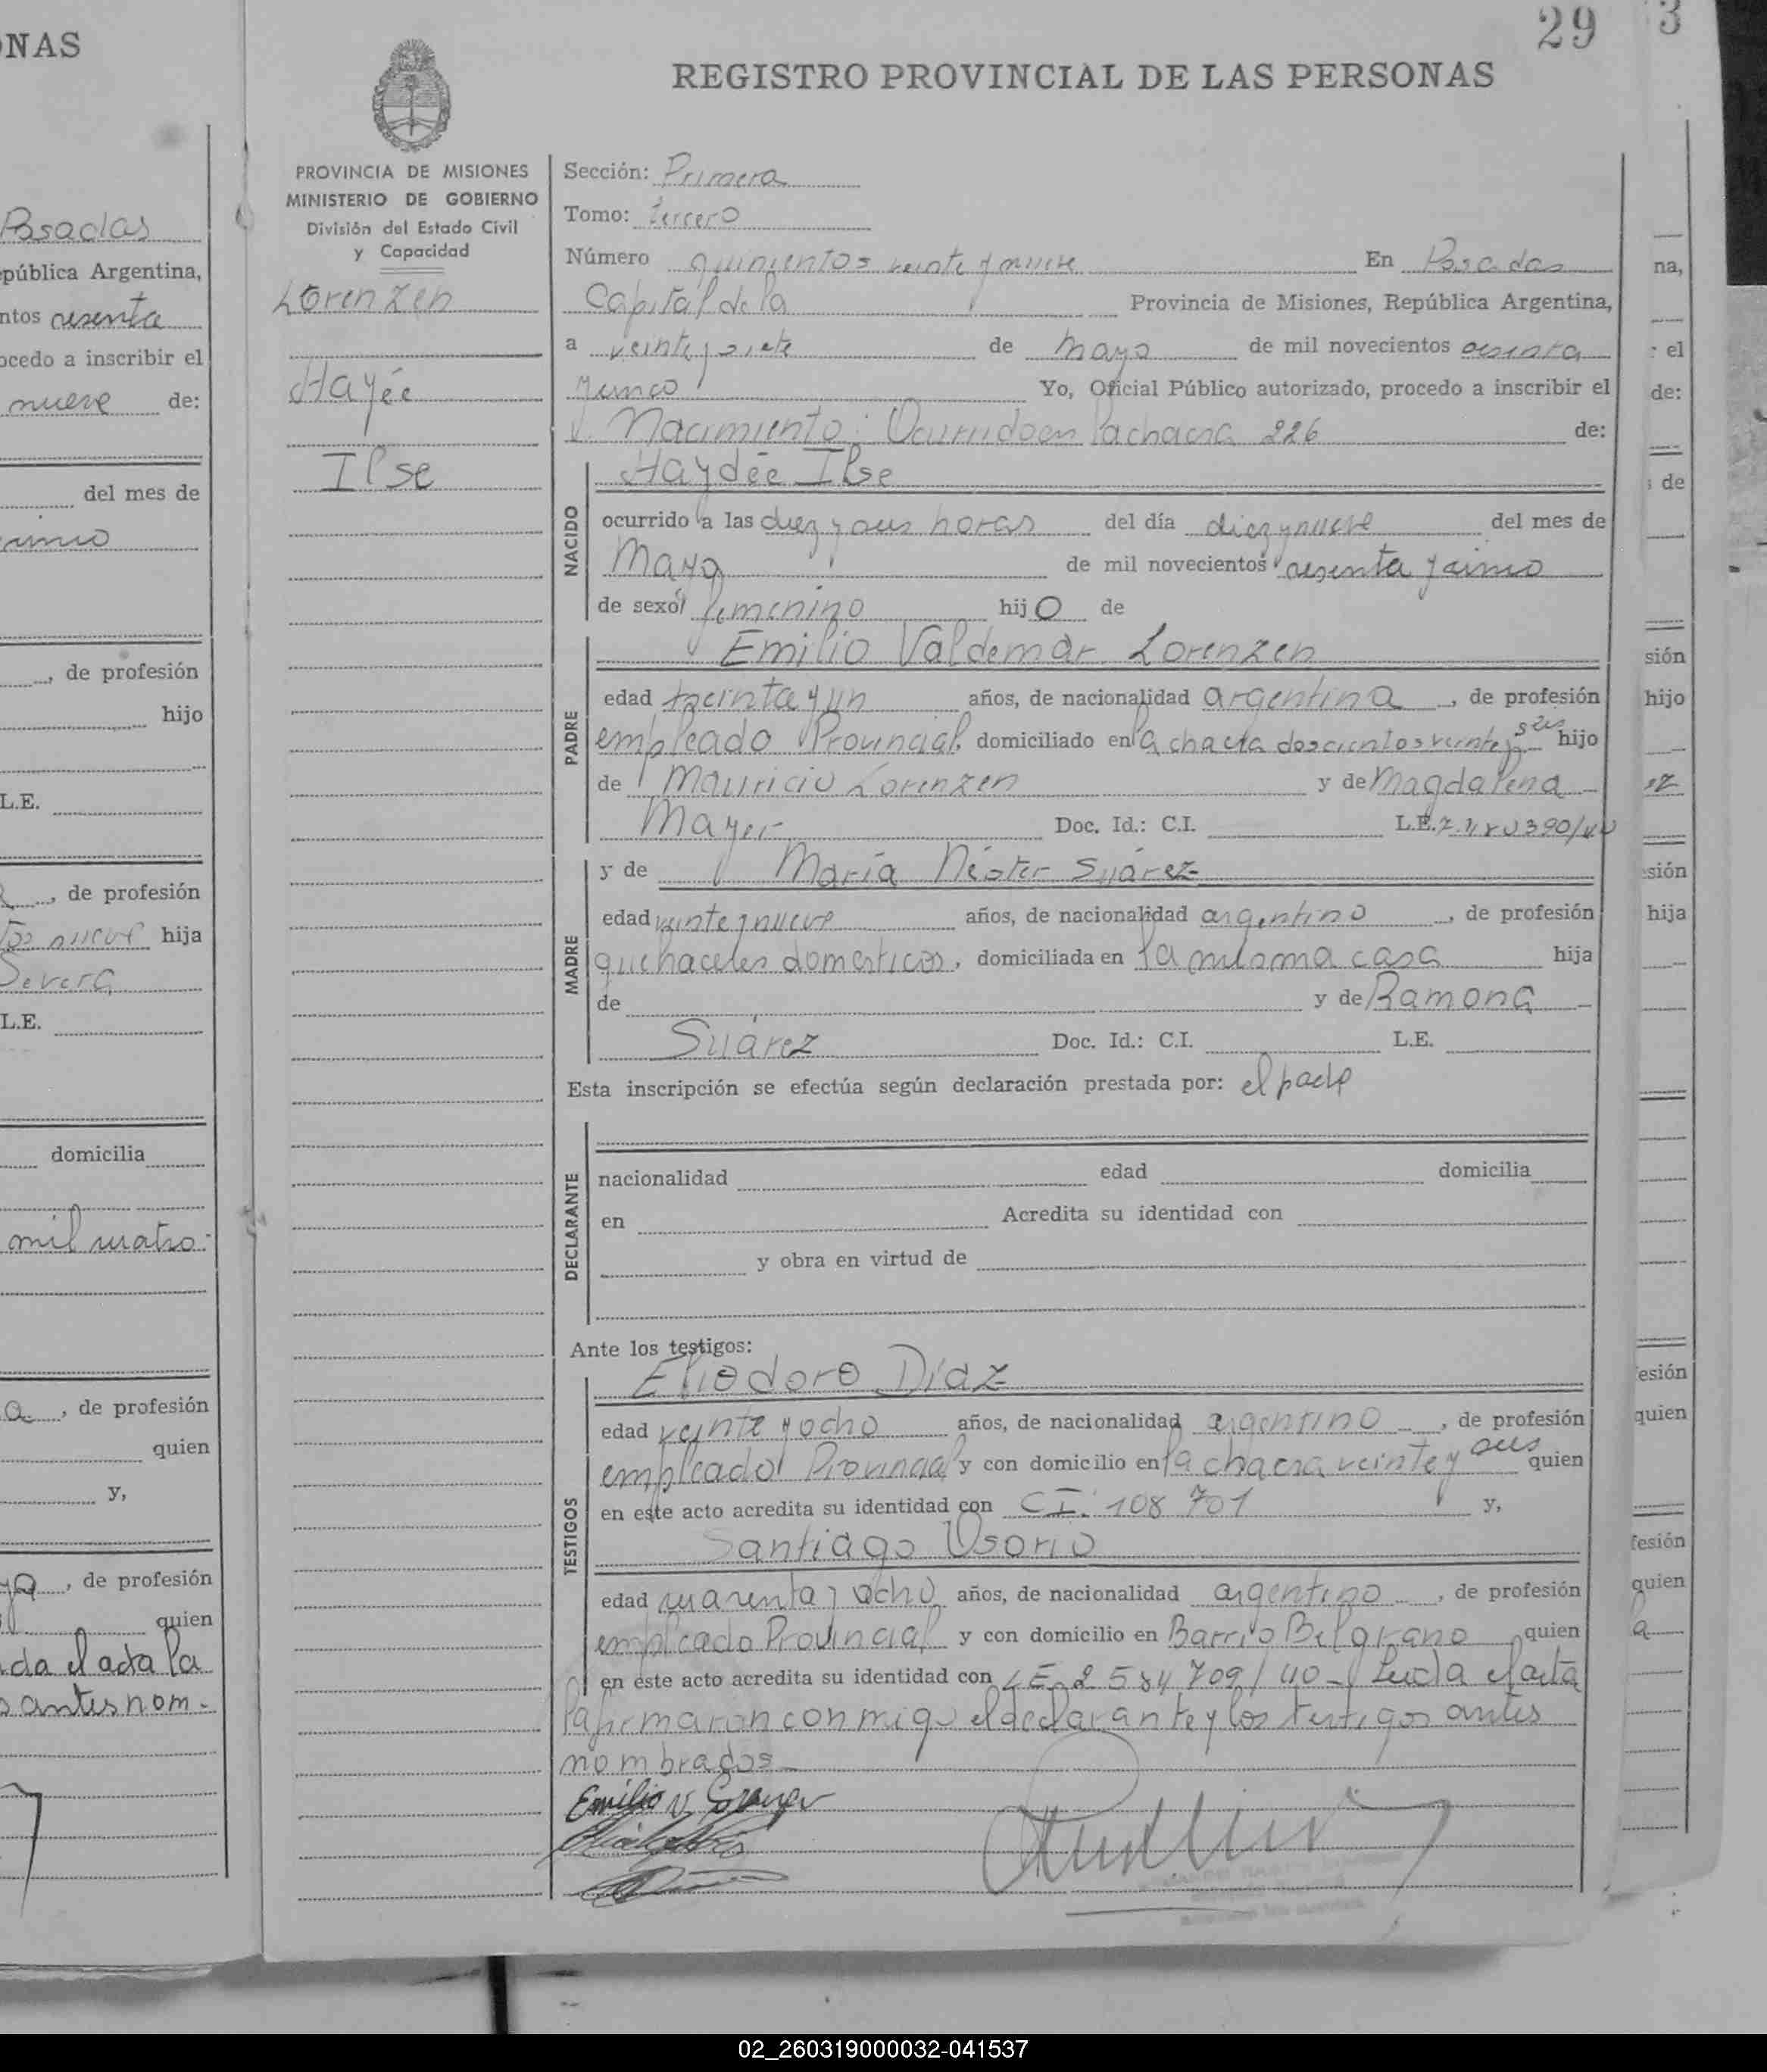 29
3
REGISTRO PROVINCIAL DE LAS PERSONAS
PROVINCIA DE MISIONES
MINISTERIO DE GOBIERNO
División del Estado Civil
y Capacidad
Lorenzen
Hayée
Ilse
Sección: Primera
Tomo: tercero
Número quinientos veinte y nueve En Posadas
Capital de la Provincia de Misiones, República Argentina,
a veinte y siete de mayo de mil novecientos sesenta
y cinco Yo, Oficial Público autorizado, procedo a inscribir el
Nacimiento: Ocurrido en la chacra 226 de:
NACIDO
Haydée Ilse
ocurrido a las diez y seis horas del día diez y nueve del mes de
Mayo de mil novecientos sesenta y cinco
de sexo femenino hijo de
PADRE
Emilio Valdemar Lorenzen
edad treinta y un años, de nacionalidad argentina, de profesión
empleado Provincial, domiciliado en la chacra doscientos veinte y seis hijo
de Mauricio Lorenzen y de Magdalena
Mayer Doc. Id.: C.I. L.E.
MADRE
y de María Néster Suárez
edad veinte y nueve años, de nacionalidad argentino, de profesión
quehaceres domesticos, domiciliada en la misma casa hija
de y de Ramona
Suárez Doc. Id.: C.I. L.E.
Esta inscripción se efectúa según declaración prestada por: el padre
DECLARANTE
nacionalidad edad domicilia
en Acredita su identidad con
y obra en virtud de
Ante los testigos:
TESTIGOS
Eliodoro Díaz
edad veinte y ocho años, de nacionalidad argentino, de profesión
empleado Provincial y con domicilio en la chacra veinte y seis quien
en este acto acredita su identidad con CI. 108 701 y,
Santiago Osorio
edad cuarenta y ocho años, de nacionalidad argentino, de profesión
empleado Provincial y con domicilio en Barrio Belgrano quien
en este acto acredita su identidad con LE. 2 584 709/40- Leida el acta
la firmaron conmigo el declarante y los testigos antes
nombrados
Emilio V. Lorenzen
02_260319000032-041537